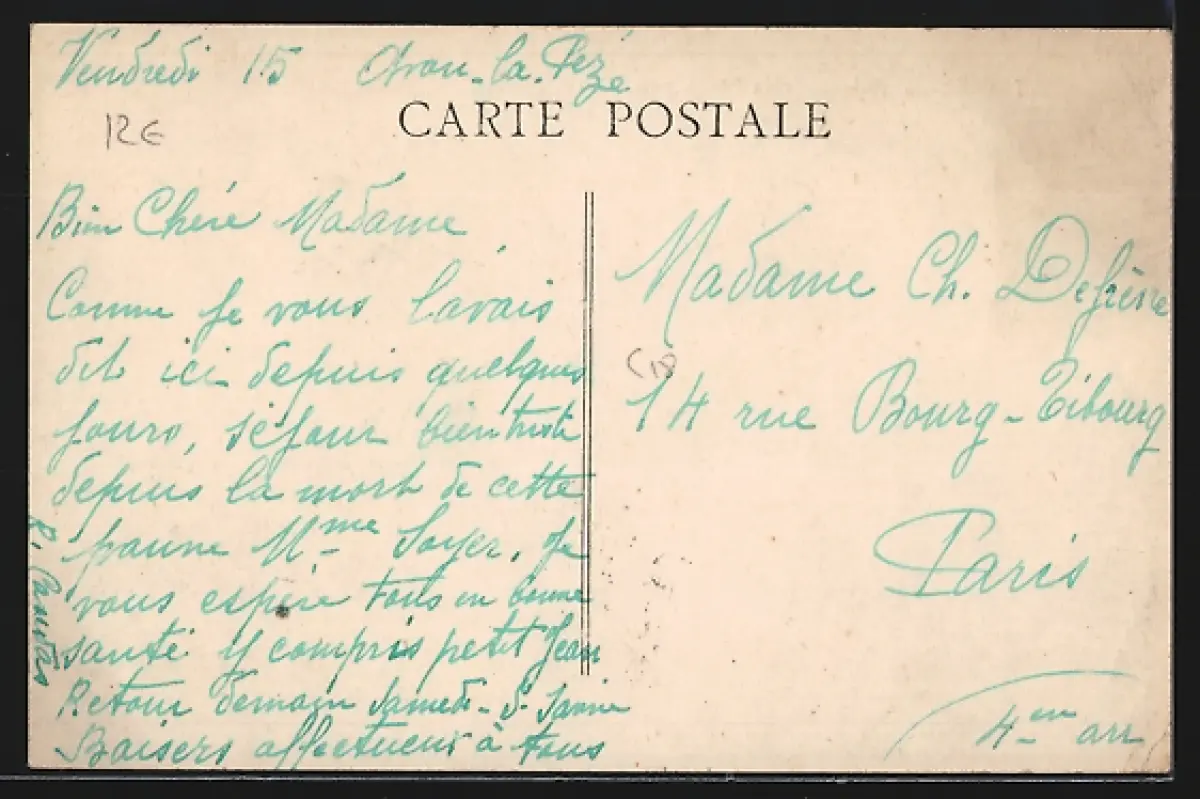 Vendredi 15 Avon-la-Pèze
CARTE POSTALE
12€
Bien Chère Madame
Comme je vous l'avais
dit ici depuis quelques
jours, séjour bien triste
depuis la mort de cette
pauvre Mme Soyer. Je
vous espère tous en bonne
santé y compris petit Jean
Retour demain Samedi
Baisers affectueux à tous
Madame Ch.
14 rue Bourg-Tibourg
Paris
4em arr